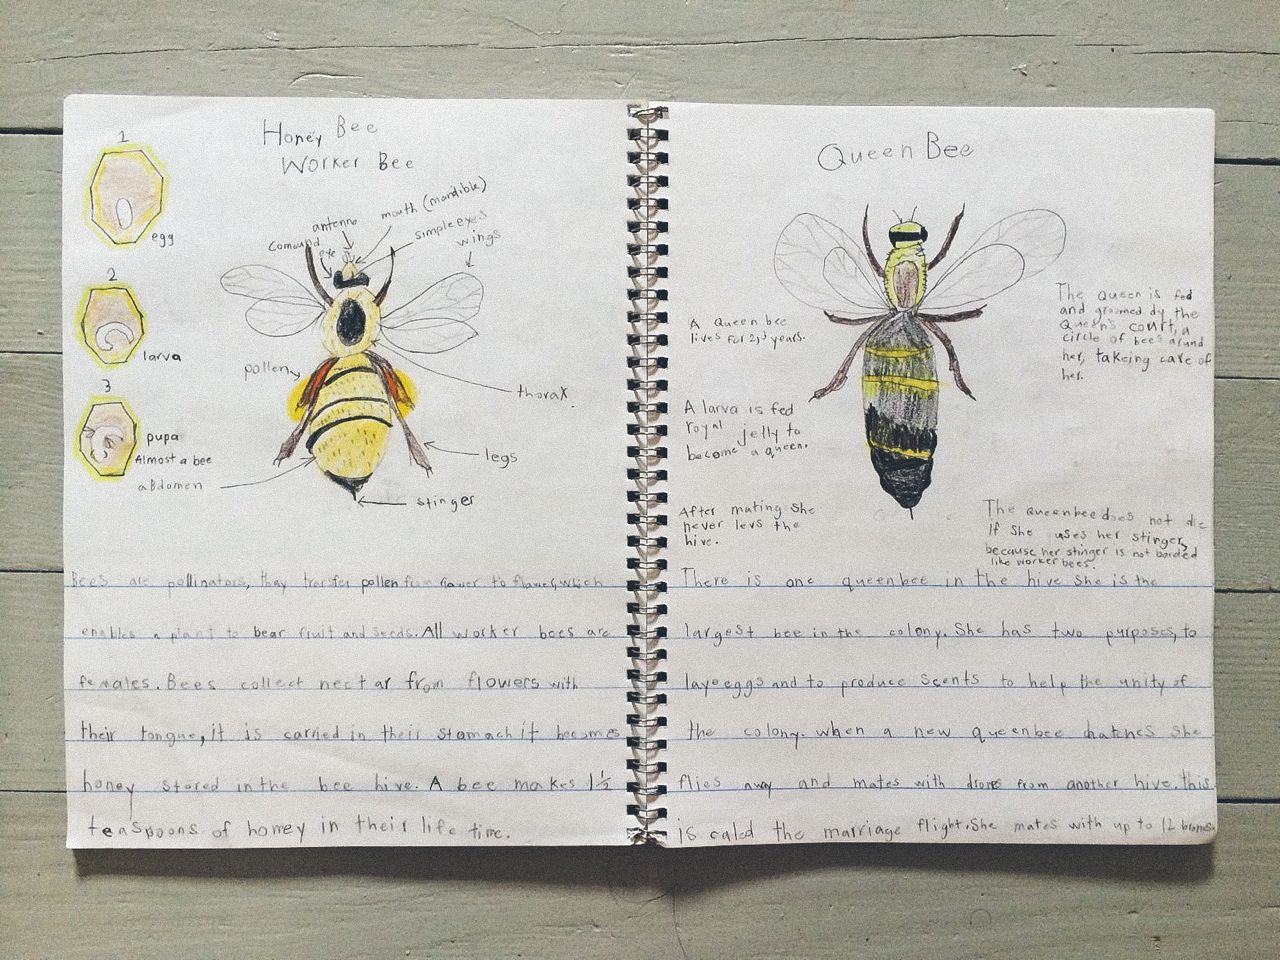 Honey Bee
Worker Bee
1
egg
2
larva
3
pupa
Almost a bee
abdomen
antenna
mouth (mandible)
comound
eye
simple eyes
wings
pollen
thorax
legs
stinger
Bees are pollinators, they transfer pollen from flower to flower, which
enables a plant to bear fruit and seeds. All worker bees are
females. Bees collect nectar from flowers with
their tongue, it is carried in their stomach it becomes
honey stored in the bee hive. A bee makes 1½
teaspoons of honey in their life time.
Queen Bee
A Queen bee
lives for 2,3 years.
A larva is fed
royal jelly to
become a queen.
After mating she
never levs the
hive.
The Queen is fed
and groomed by the
Queen's court, a
circle of bees around
her, takeing care of
her.
The queenbee does not die
If she uses her stinger,
because her stinger is not barded
like worker bees.
There is one queenbee in the hive she is the
largest bee in the colony. She has two purposes, to
laye eggs and to produce scents to help the unity of
the colony. when a new queenbee hatches she
flies away and mates with drones from another hive. this
is caled the marriage flight. She mates with up to 12